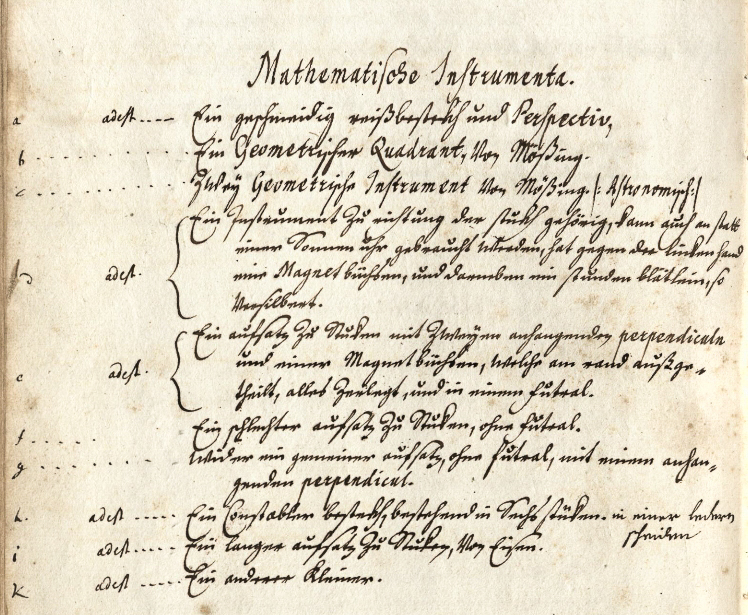 Mathematische Instrumenta.
a adest ---- Ein geschmeidig reißbesteckh und Perspectiv,
b . . . . . . . . . . Ein Geometrischer Quadrant, von Mößing.
c . . . . . . . . . . Zwey Geometrische Instrument von Mößing. /: Astronomisch :/
Ein Instrument zu richtung der stukh gehörig, kann auch an statt
einer Sonnen uhr gebraucht werden, hat gegen der lincken hand
d adest. eine Magnet büchsen, und darneben ein stunden blätlein, so
versilbert.
Ein aufsatz zu Stuken mit zweyen anhangenden perpendiculn
und einer Magnet büchsen, welche am rand außge-
e adest. theilt, alles zerlegt, und in einem futral.
f . . . . Ein schlechter aufsatz zu Stuken, ohne futral.
g . . . . . . . . . Wider ein gemeiner aufsatz, ohne futral, mit einem anhan-
genden perpendicul.
h. adest ----- Ein Constabler besteckh, bestehend in Sechs stüken. in einer ledern
scheiden
i adest ----- Ein langer aufsatz zu Stuken, von Eisen.
k adest ----- Ein anderer kleiner.